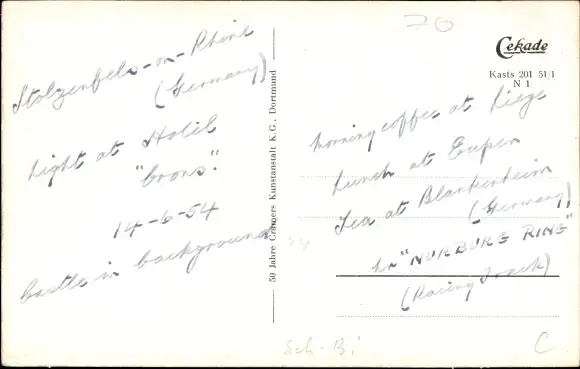 Stolzenfels-on-Rhine
(Germany)
Night at Hotel
"Crons".
14-6-54
Castle in background
50 Jahre Cramers Kunstanstalt K.G., Dortmund
70
Cekade
Kasts 201 51/1
N 1
Morning coffee at Liege
Lunch at Eupen
Tea at Blankenheim
(Germany)
nr "NURBURG RING"
(Racing Track)
Sch-Bi
C